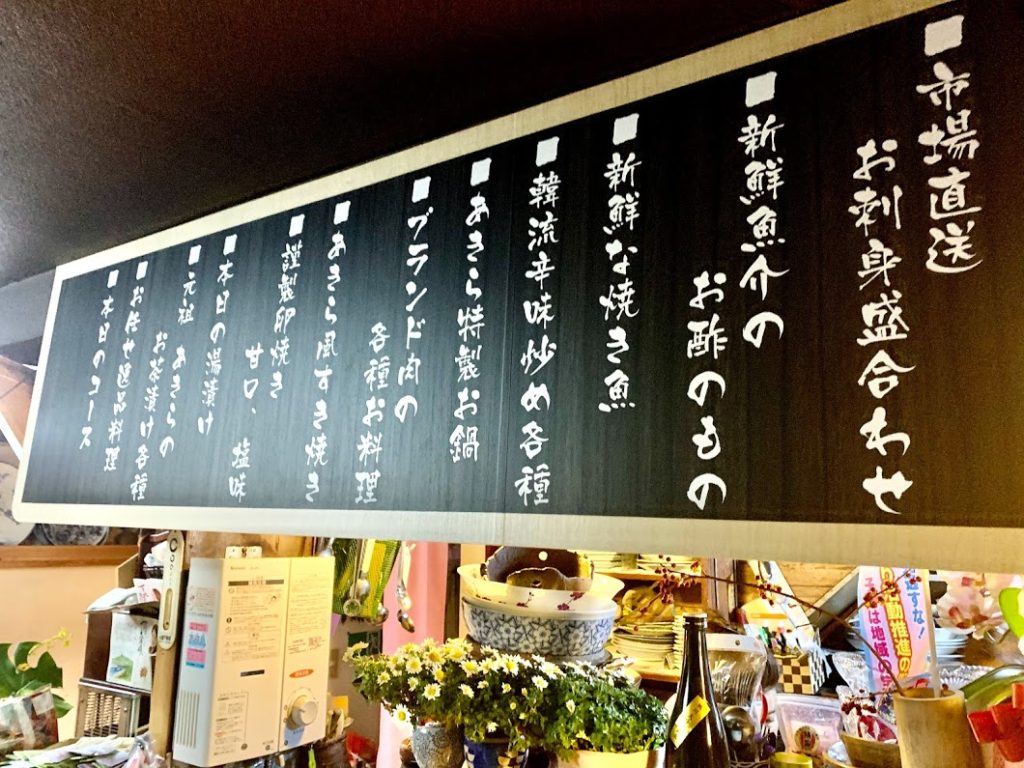 ■市場直送
お刺身盛合わせ
■新鮮魚介の
お酢のもの
■新鮮な焼き魚
■韓流辛味炒め各種
■あきら特製お鍋
■ブランド肉の
各種お料理
■あきら風すき焼き
■謹製卵焼き
甘口、塩味
■本日の湯漬け
■元祖 あきらの
お茶漬け各種
■お任せ逸品料理
■本日のコース